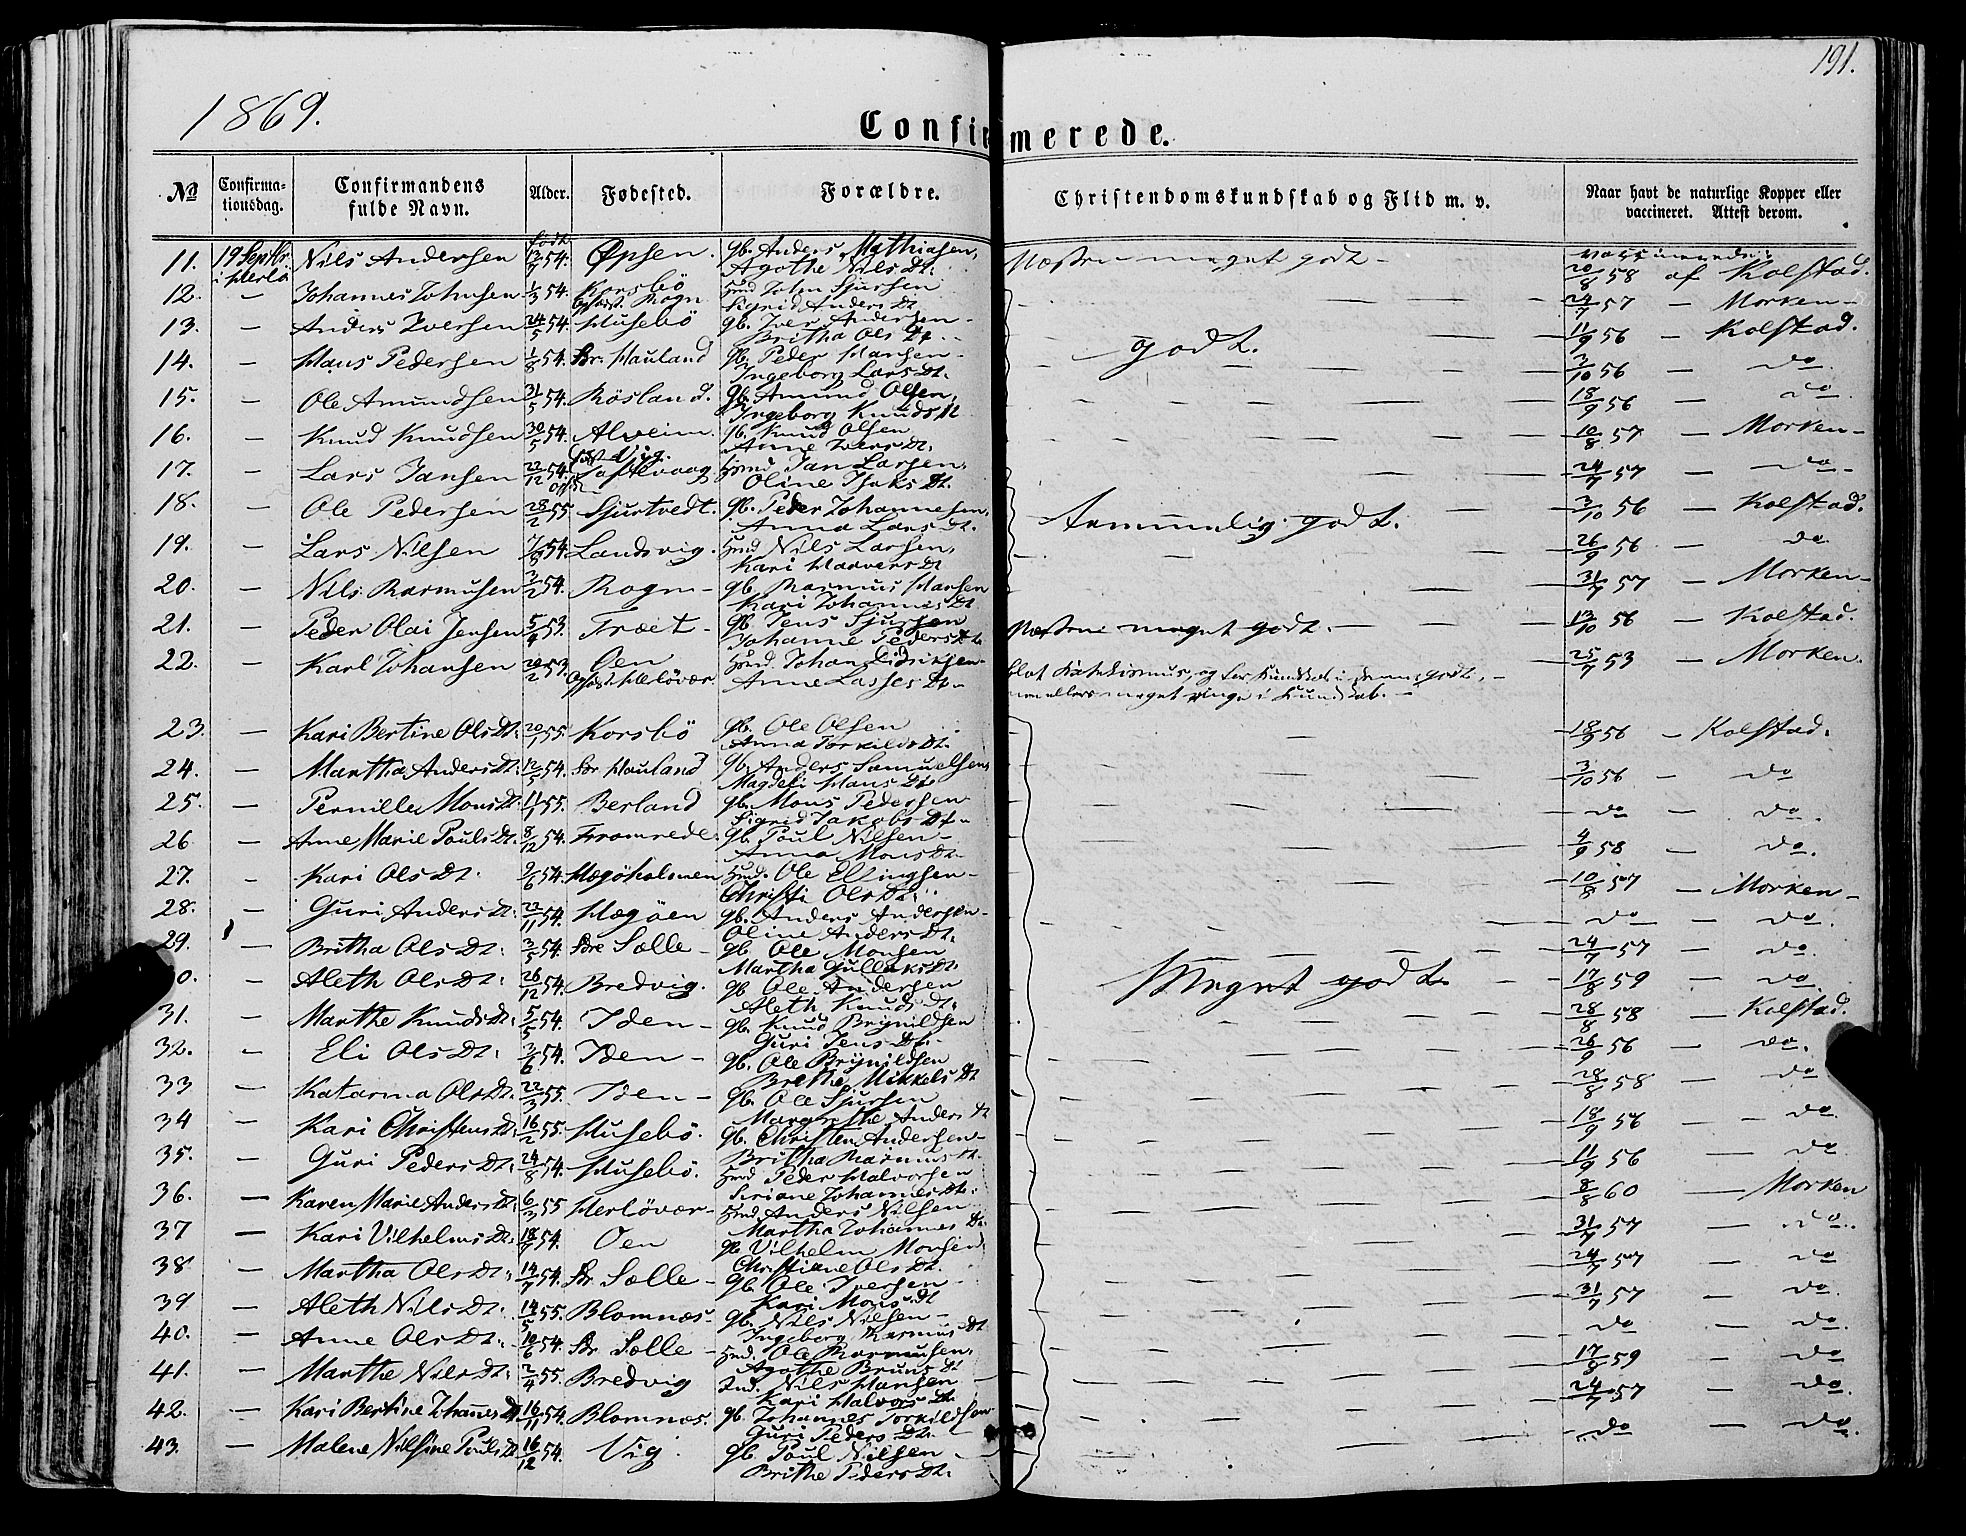 191.
1869.
Confirmerede.
№ Confirmationsdag. Confirmandens fulde Navn. Alder. Fødested. Forældre. Christendomskundskab og Flid m. v. Naar havt de naturlige Kopper eller vaccineret. Attest derom.
11. 19 Septbr i Herlø Nils Andersen født 12/7 54. Øpsen. gb. Anders Mathiasen, Agothe Nils Dt. Næsten meget godt - 20/8 58 af Kolstad.
12. — Johannes Johnsen 1/3 54. Korsbö Rogn John Sjursen Sigrid Anders Dt — 24/7 57 — Morken —
13. — Anders Iversen 24/5 54. Husebö gb. Iver Andersen Britha Ols Dt. 11/9 56 — Kolstad.
14. — Hans Pedersen 1/8 54. Hauland gb. Peder Hansen Ingeborg Lars Dt. godt. 3/10 56 — do.
15. — Ole Amundsen 31/5 54. Rösland. gb. Amund Olsen, Ingeborg Knuds Dt — 18/9 56 — do
16. — Knud Knudsen 30/5 54. Alveim. gb. Knud Olsen Anne Ivers Dt. — 10/8 57 — Morken —
17. — Lars Jansen 22/12 54. Jan Larsen, Oline Isaks Dt. — 24/7 57 — do —
18. — Ole Pedersen 28/2 55. Sjurtvedt. gb. Peder Johannesen, Anna Lars Dt. temmelig godt. 3/10 56 — Kolstad.
19. — Lars Nilsen 7/8 54. Landsvig. Nils Larsen, Kari Halvers Dt — 26/9 56 — do
20. — Nils Rasmusen 3/2 54. Rogn — gb. Rasmus Hansen Kari Johannes Dt — 31/7 57 — Morken —
21. — Peder Olai Jensen 5/4 53. Træet — gb. Jens Sjursen Johanne Peders Dt Næsten meget godt. 13/10 56 — Kolstad.
22. — Karl Johansen 20/2 53. Oen Herlövær Johan Didriksen Anne Lasses Dt — 25/7 53 — Morken.
23. — Kari Bertine Ols Dt. 20/1 55 Korsbö gb. Ole Olsen Anna Torkilds Dt. — 18/9 56 — Kolstad.
24. — Martha Anders Dt. 12/5 54. Hauland gb. Anders Samuelsen, Magdeli Hans Dt — 3/10 56 — do
25. — Pernille Mons Dt. 11/1 55. Berland gb. Mons Pedersen Sigrid Jakobs Dt — do — do.
26 — Anne Marie Pouls Dt. 8/12 54. Fromrede. gb. Poul Nilsen — Anna Mons Dt. — 4/9 58 — do.
27. — Kari Ols Dt. 2/6 54. Hægöholmen Ole Ellingsen — Christi Ols Dt. — 10/8 57 — Morken —
28. — Guri Anders Dt. 22/11 54. Hægöen gb. Anders Andersen — Oline Anders Dt. — do — do.
29. — Britha Ols Dt. 3/5 54. Sælle — gb. Ole Monsen Martha Gullaks Dt. — 24/7 57 — do
30. — Aleth Ols Dt. 26/12 54. Bredvig. gb. Ole Andersen Aleth Knuds Dt. Meget godt. 17/8 59 — do
31. — Marthe Knuds Dt. 5/5 54. Iden — gb. Knud Brynildsen Guri Jens Dt. — 28/8 58 — Kolstad.
32. — Eli Ols Dt. 3/6 54. Iden — gb. Ole Brynildsen Brethe Mikkels Dt — 26/9 56 — do.
33 — Katarina Ols Dt. 22/3 55. Iden — gb. Ole Sjursen Margrethe Anders Dt — 28/8 58 — do
34 — Kari Christens Dt. 16/2 55. Husebö. gb. Christen Andersen — Britha Rasmus Dt. — 18/9 56 — do.
35. — Guri Peders Dt. 24/8 54. Husebö. Peder Halvorsen Siriane Johannes Dt. — 11/9 56 — do
36. — Karen Marie Anders Dt. 6/3 55 Herlövær — Anders Nilsen Martha Johannes Dt. — 8/8 60 — Morken
37 — Kari Vilhelms Dt. 18/7 54. Oen gb. Vilhelm Monsen Christiane Ols Dt. — 31/7 57 — do.
38 — Martha Ols Dt. 14/7 54. Sælle — gb. Ole Iversen Kari Mons Dt — 24/7 57 — do
39 — Aleth Nils Dt. 14/5 55. Blomnæs — gb. Nils Nilsen — Ingeborg Rasmus Dt — 31/7 57 — do.
40. — Anne Ols Dt. 10/6 54. Sælle — Ole Rasmusen, Agothe Bruns Dt — do — do.
41. — Marthe Nils Dt. 2/4 55. Bredvig Nils Hansen — Kari Halvors Dt. — 17/8 59 — do
42. — Kari Bertine Johannes Dt 16/11 54. Blomnæs. gb. Johannes Torkildsen Guri Peders Dt. — 24/7 57 — do.
43. — Malene Nilsine Pouls Dt 16/12 54. Vig. gb. Poul Nilsen — Brithe Peders Dt. — do — do.